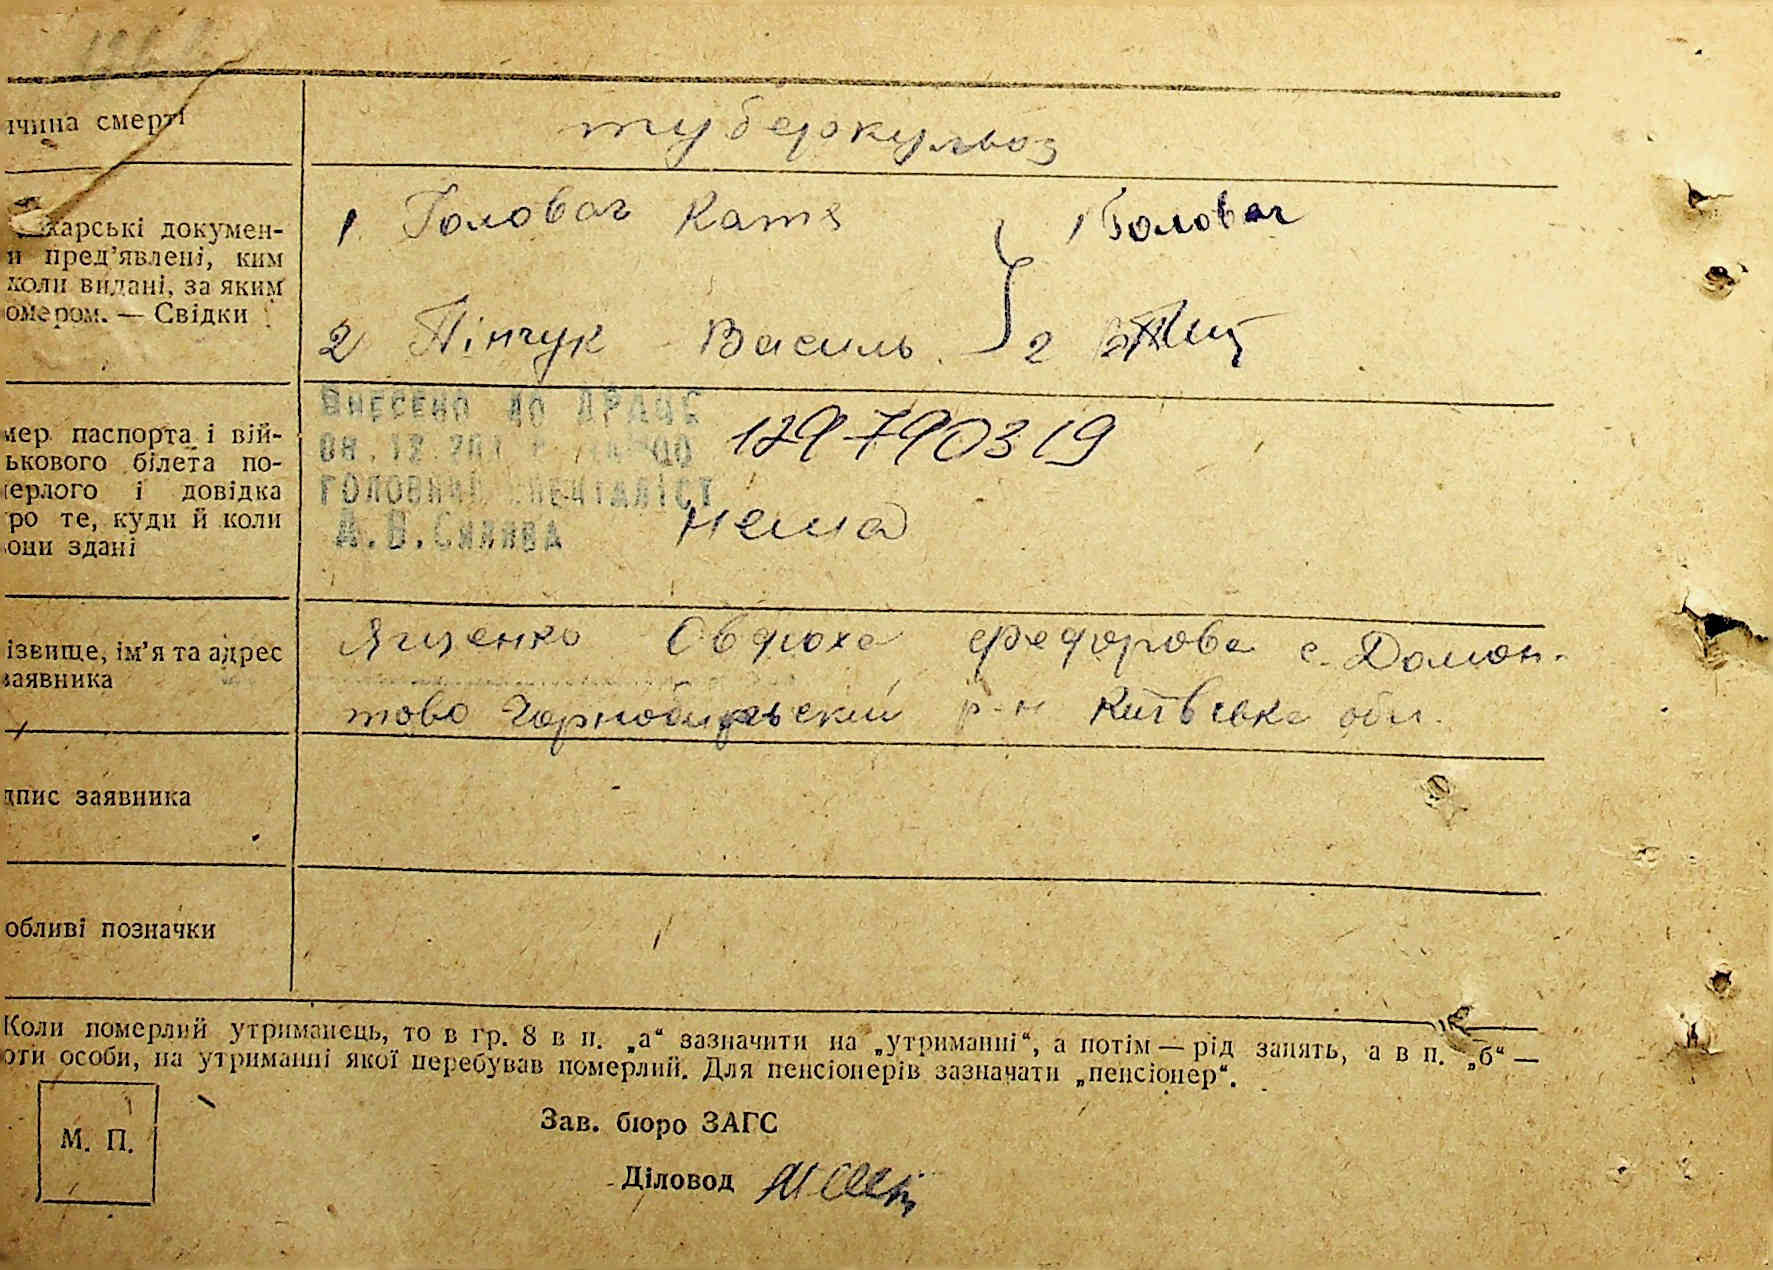 ичина смерті
туберкульоз
карські докумен-
и пред’явлені, ким
коли видані, за яким
омером. — Свідки
1 Головач Катя
1 Головач
2 Пінчук Василь
2
мер паспорта і вій-
ькового білета по-
ерлого і довідка
ро те, куди й коли
они здані
ВНЕСЕНО ДО ДРАЦС
ГОЛОВНИЙ СПЕЦІАЛІСТ
129790319
нема
ізвище, ім’я та адрес
заявника
Ященко Овдюха Федорова с. Домон-
тово Чорнобильский р-н Київська обл.
дпис заявника
обливі позначки
Коли померлий утриманець, то в гр. 8 в п. „а“ зазначити на „утриманні“, а потім — рід занять, а в п. „б“ —
оти особи, на утриманні якої перебував померлий. Для пенсіонерів зазначати „пенсіонер“.
М. П.
Зав. бюро ЗАГС
Діловод